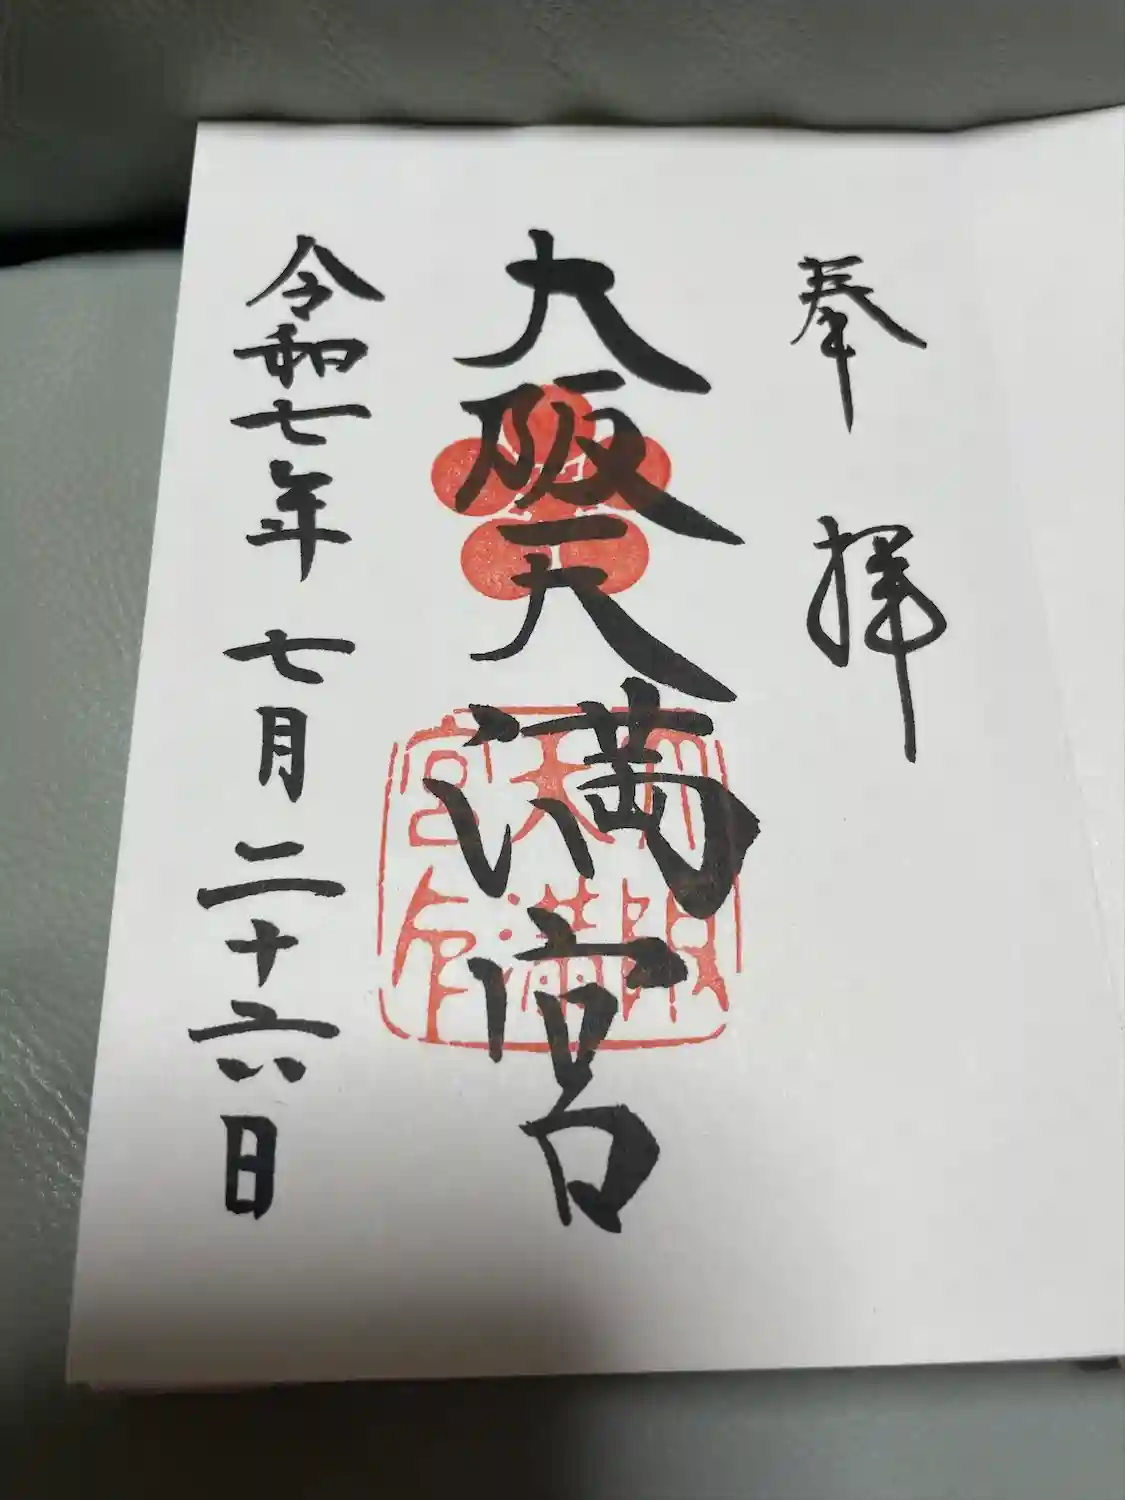 奉拝
大阪天満宮
大阪
天満
宮印
令和七年 七月二十六日